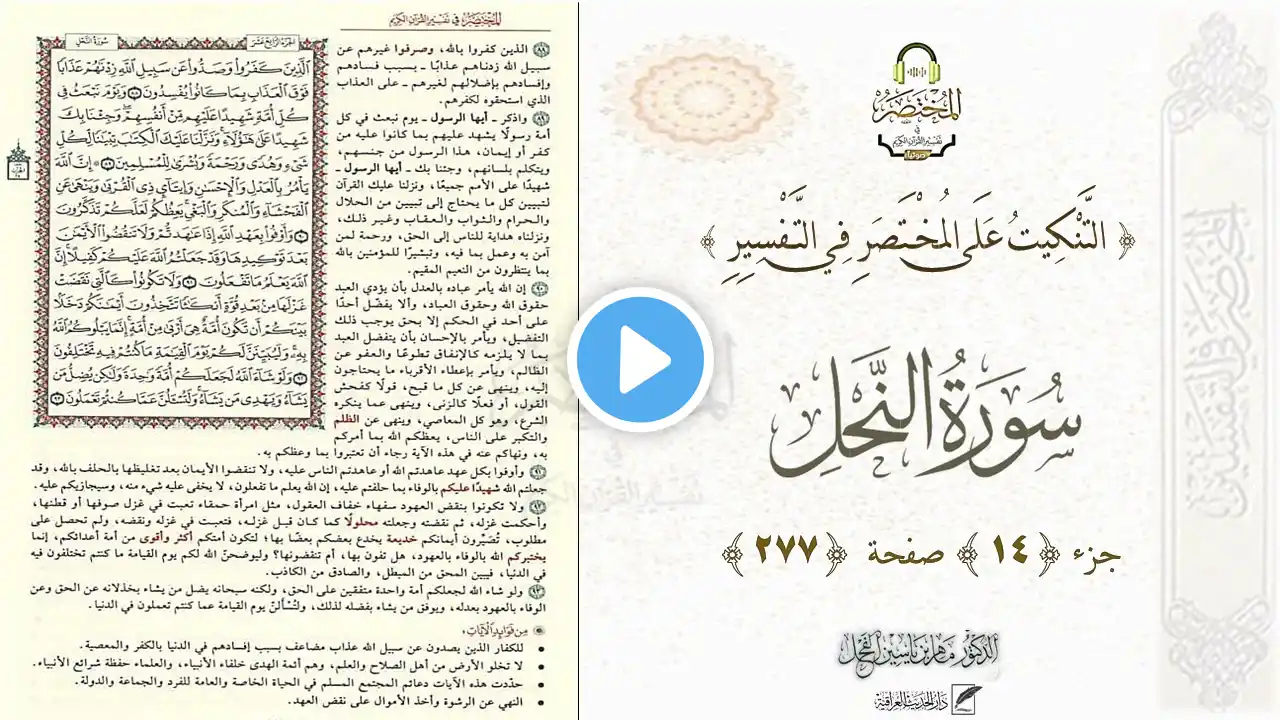 المختصر في تفسير القرآن الكريم
سورة النحل
الجزء الرابع عشر
ٱلَّذِينَ كَفَرُواْ وَصَدُّواْ عَن سَبِيلِ ٱللَّهِ زِدْنَٰهُمْ عَذَابًا
فَوْقَ ٱلْعَذَابِ بِمَا كَانُواْ يُفْسِدُونَ ٨٨ وَيَوْمَ نَبْعَثُ فِي
كُلِّ أُمَّةٍ شَهِيدًا عَلَيْهِم مِّنْ أَنفُسِهِمْ وَجِئْنَا بِكَ
شَهِيدًا عَلَىٰ هَٰٓؤُلَآءِ وَنَزَّلْنَا عَلَيْكَ ٱلْكِتَٰبَ تِبْيَٰنًا لِّكُلِّ
شَيْءٍ وَهُدًى وَرَحْمَةً وَبُشْرَىٰ لِلْمُسْلِمِينَ ٨٩ إِنَّ ٱللَّهَ
يَأْمُرُ بِٱلْعَدْلِ وَٱلْإِحْسَٰنِ وَإِيتَآيِٕ ذِي ٱلْقُرْبَىٰ وَيَنْهَىٰ عَنِ
ٱلْفَحْشَآءِ وَٱلْمُنكَرِ وَٱلْبَغْيِ يَعِظُكُمْ لَعَلَّكُمْ تَذَكَّرُونَ
٩٠ وَأَوْفُواْ بِعَهْدِ ٱللَّهِ إِذَا عَٰهَدتُّمْ وَلَا تَنقُضُواْ ٱلْأَيْمَٰنَ
بَعْدَ تَوْكِيدِهَا وَقَدْ جَعَلْتُمُ ٱللَّهَ عَلَيْكُمْ كَفِيلًا إِنَّ
ٱللَّهَ يَعْلَمُ مَا تَفْعَلُونَ ٩١ وَلَا تَكُونُواْ كَٱلَّتِي نَقَضَتْ
غَزْلَهَا مِنۢ بَعْدِ قُوَّةٍ أَنكَٰثًا تَتَّخِذُونَ أَيْمَٰنَكُمْ دَخَلًۢا
بَيْنَكُمْ أَن تَكُونَ أُمَّةٌ هِيَ أَرْبَىٰ مِنْ أُمَّةٍ إِنَّمَا يَبْلُوكُمُ ٱللَّهُ
بِهِۦ وَلَيُبَيِّنَنَّ لَكُمْ يَوْمَ ٱلْقِيَٰمَةِ مَا كُنتُمْ فِيهِ تَخْتَلِفُونَ
٩٢ وَلَوْ شَآءَ ٱللَّهُ لَجَعَلَكُمْ أُمَّةً وَٰحِدَةً وَلَٰكِن يُضِلُّ مَن
يَشَآءُ وَيَهْدِي مَن يَشَآءُ وَلَتُسْـَٔلُنَّ عَمَّا كُنتُمْ تَعْمَلُونَ ٩٣
٨٨ الذين كفروا بالله، وصرفوا غيرهم عن
سبيل الله زدناهم عذابًا ـ بسبب فسادهم
وإفسادهم بإضلالهم لغيرهم ـ على العذاب
الذي استحقوه لكفرهم.
٨٩ واذكر ـ أيها الرسول ـ يوم نبعث في كل
أمة رسولًا يشهد عليهم بما كانوا عليه من
كفر أو إيمان، هذا الرسول من جنسهم،
ويتكلم بلسانهم، وجئنا بك ـ أيها الرسول ـ
شهيدًا على الأمم جميعًا، ونزلنا عليك القرآن
لتبيين كل ما يحتاج إلى تبيين من الحلال
والحرام والثواب والعقاب وغير ذلك،
ونزلناه هداية للناس إلى الحق، ورحمة لمن
آمن به وعمل بما فيه، وتبشيرًا للمؤمنين بالله
بما ينتظرون من النعيم المقيم.
٩٠ إن الله يأمر عباده بالعدل بأن يؤدي العبد
حقوق الله وحقوق العباد، وألا يفضّل أحدًا
على أحد في الحكم إلا بحق يوجب ذلك
التفضيل، ويأمر بالإحسان بأن يتفضل العبد
بما لا يلزمه كالإنفاق تطوعًا والعفو عن
الظالم، ويأمر بإعطاء الأقرباء ما يحتاجون
إليه، وينهى عن كل ما قبح، قولًا كفحش
القول، أو فعلًا كالزنى، وينهى عما ينكره
الشرع، وهو كل المعاصي، وينهى عن الظلم
والتكبر على الناس، يعظكم الله بما أمركم
به، ونهاكم عنه في هذه الآية رجاء أن تعتبروا بما وعظكم به.
٩١ وأوفوا بكل عهد عاهدتم الله أو عاهدتم الناس عليه، ولا تنقضوا الأيمان بعد تغليظها بالحلف بالله، وقد
جعلتم الله شهيدًا عليكم بالوفاء بما حلفتم عليه، إن الله يعلم ما تفعلون، لا يخفى عليه شيء منه، وسيجازيكم عليه.
٩٢ ولا تكونوا بنقض العهود سفهاء خفاف العقول، مثل امرأة حمقاء تعبت في غزل صوفها أو قطنها،
وأحكمت غزله، ثم نقضته وجعلته محلولًا كما كان قبل غزله، فتعبت في غزله ونقضه، ولم تحصل على
مطلوب، تُصَيِّرون أيمانكم خديعة يخدع بعضكم بعضًا بها؛ لتكون أمتكم أكثر وأقوى من أمة أعدائكم، إنما
يختبركم الله بالوفاء بالعهود، هل تفون بها، أم تنقضونها؟ وليوضحنّ الله لكم يوم القيامة ما كنتم تختلفون فيه
في الدنيا، فيبين المحق من المبطل، والصادق من الكاذب.
٩٣ ولو شاء الله لجعلكم أمة واحدة متفقين على الحق، ولكنه سبحانه يضل من يشاء بخذلانه عن الحق وعن
الوفاء بالعهود بعدله، ويوفق من يشاء بفضله لذلك، ولتُسألنّ يوم القيامة عما كنتم تعملون في الدنيا.
من فوائد الآيات:
• للكفار الذين يصدون عن سبيل الله عذاب مضاعف بسبب إفسادهم في الدنيا بالكفر والمعصية.
• لا تخلو الأرض من أهل الصلاح والعلم، وهم أئمة الهدى خلفاء الأنبياء، والعلماء حفظة شرائع الأنبياء.
• حدّدت هذه الآيات دعائم المجتمع المسلم في الحياة الخاصة والعامة للفرد والجماعة والدولة.
• النهي عن الرشوة وأخذ الأموال على نقض العهد.
المختصر
في
تفسير القرآن الكريم
صوتيا
﴿ التَّنْكِيتُ عَلَى الْمُخْتَصَرِ فِي التَّفْسِيرِ ﴾
سُورَةُ النَّحْلِ
جزء ﴿ ١٤ ﴾ صفحة ﴿ ٢٧٧ ﴾
الدكتور ماهر بن ياسين الفحل
دار الحديث العراقية